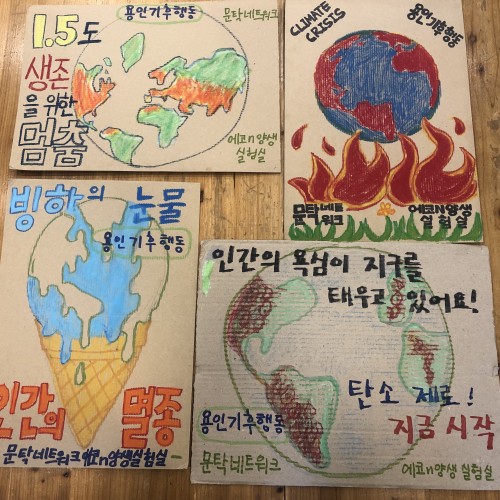 용인기후행동
문탁네트워크
1.5도
생존
을 위한
멈춤
에코n양생
실험실
CLIMATE
CRISIS
용인기후행동
문탁네트
워크
에코N양생
실험실
빙하의 눈물
용인기후행동
인간의 멸종
문탁네트워크 에코n양생실험실
인간의 욕심이 지구를
태우고 있어요!
탄소 제로!
지금 시작
용인기후행동
문탁네트워크
에코n양생실험실